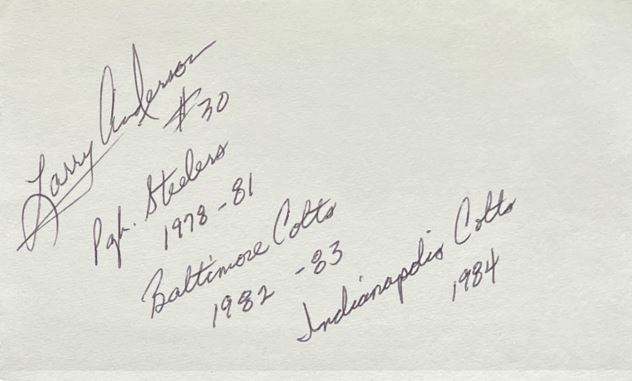 Larry Anderson
#30
Pgh. Steelers
1978-81
Baltimore Colts
1982-83
Indianapolis Colts
1984